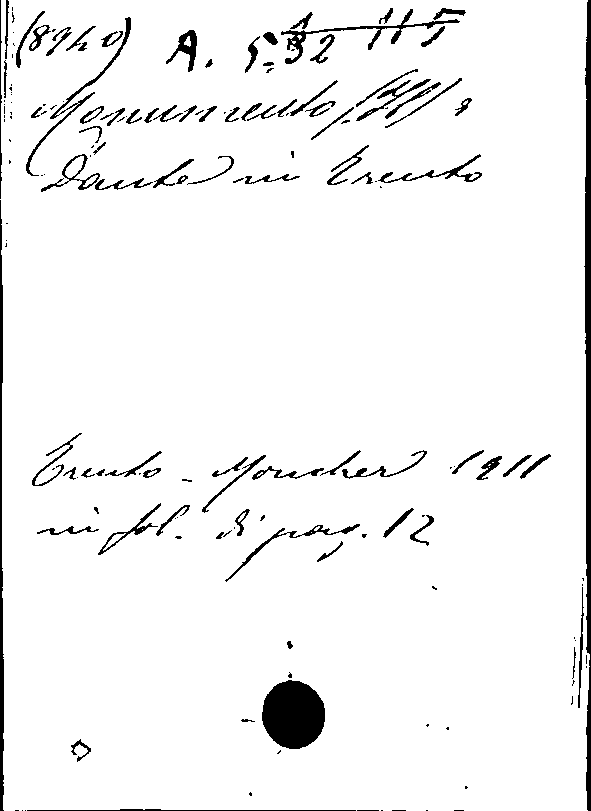 (8940) A. 5. 32 115
Monumento (Il) a
Dante in Trento
Trento - Moncher 1911
in fol. di pag. 12